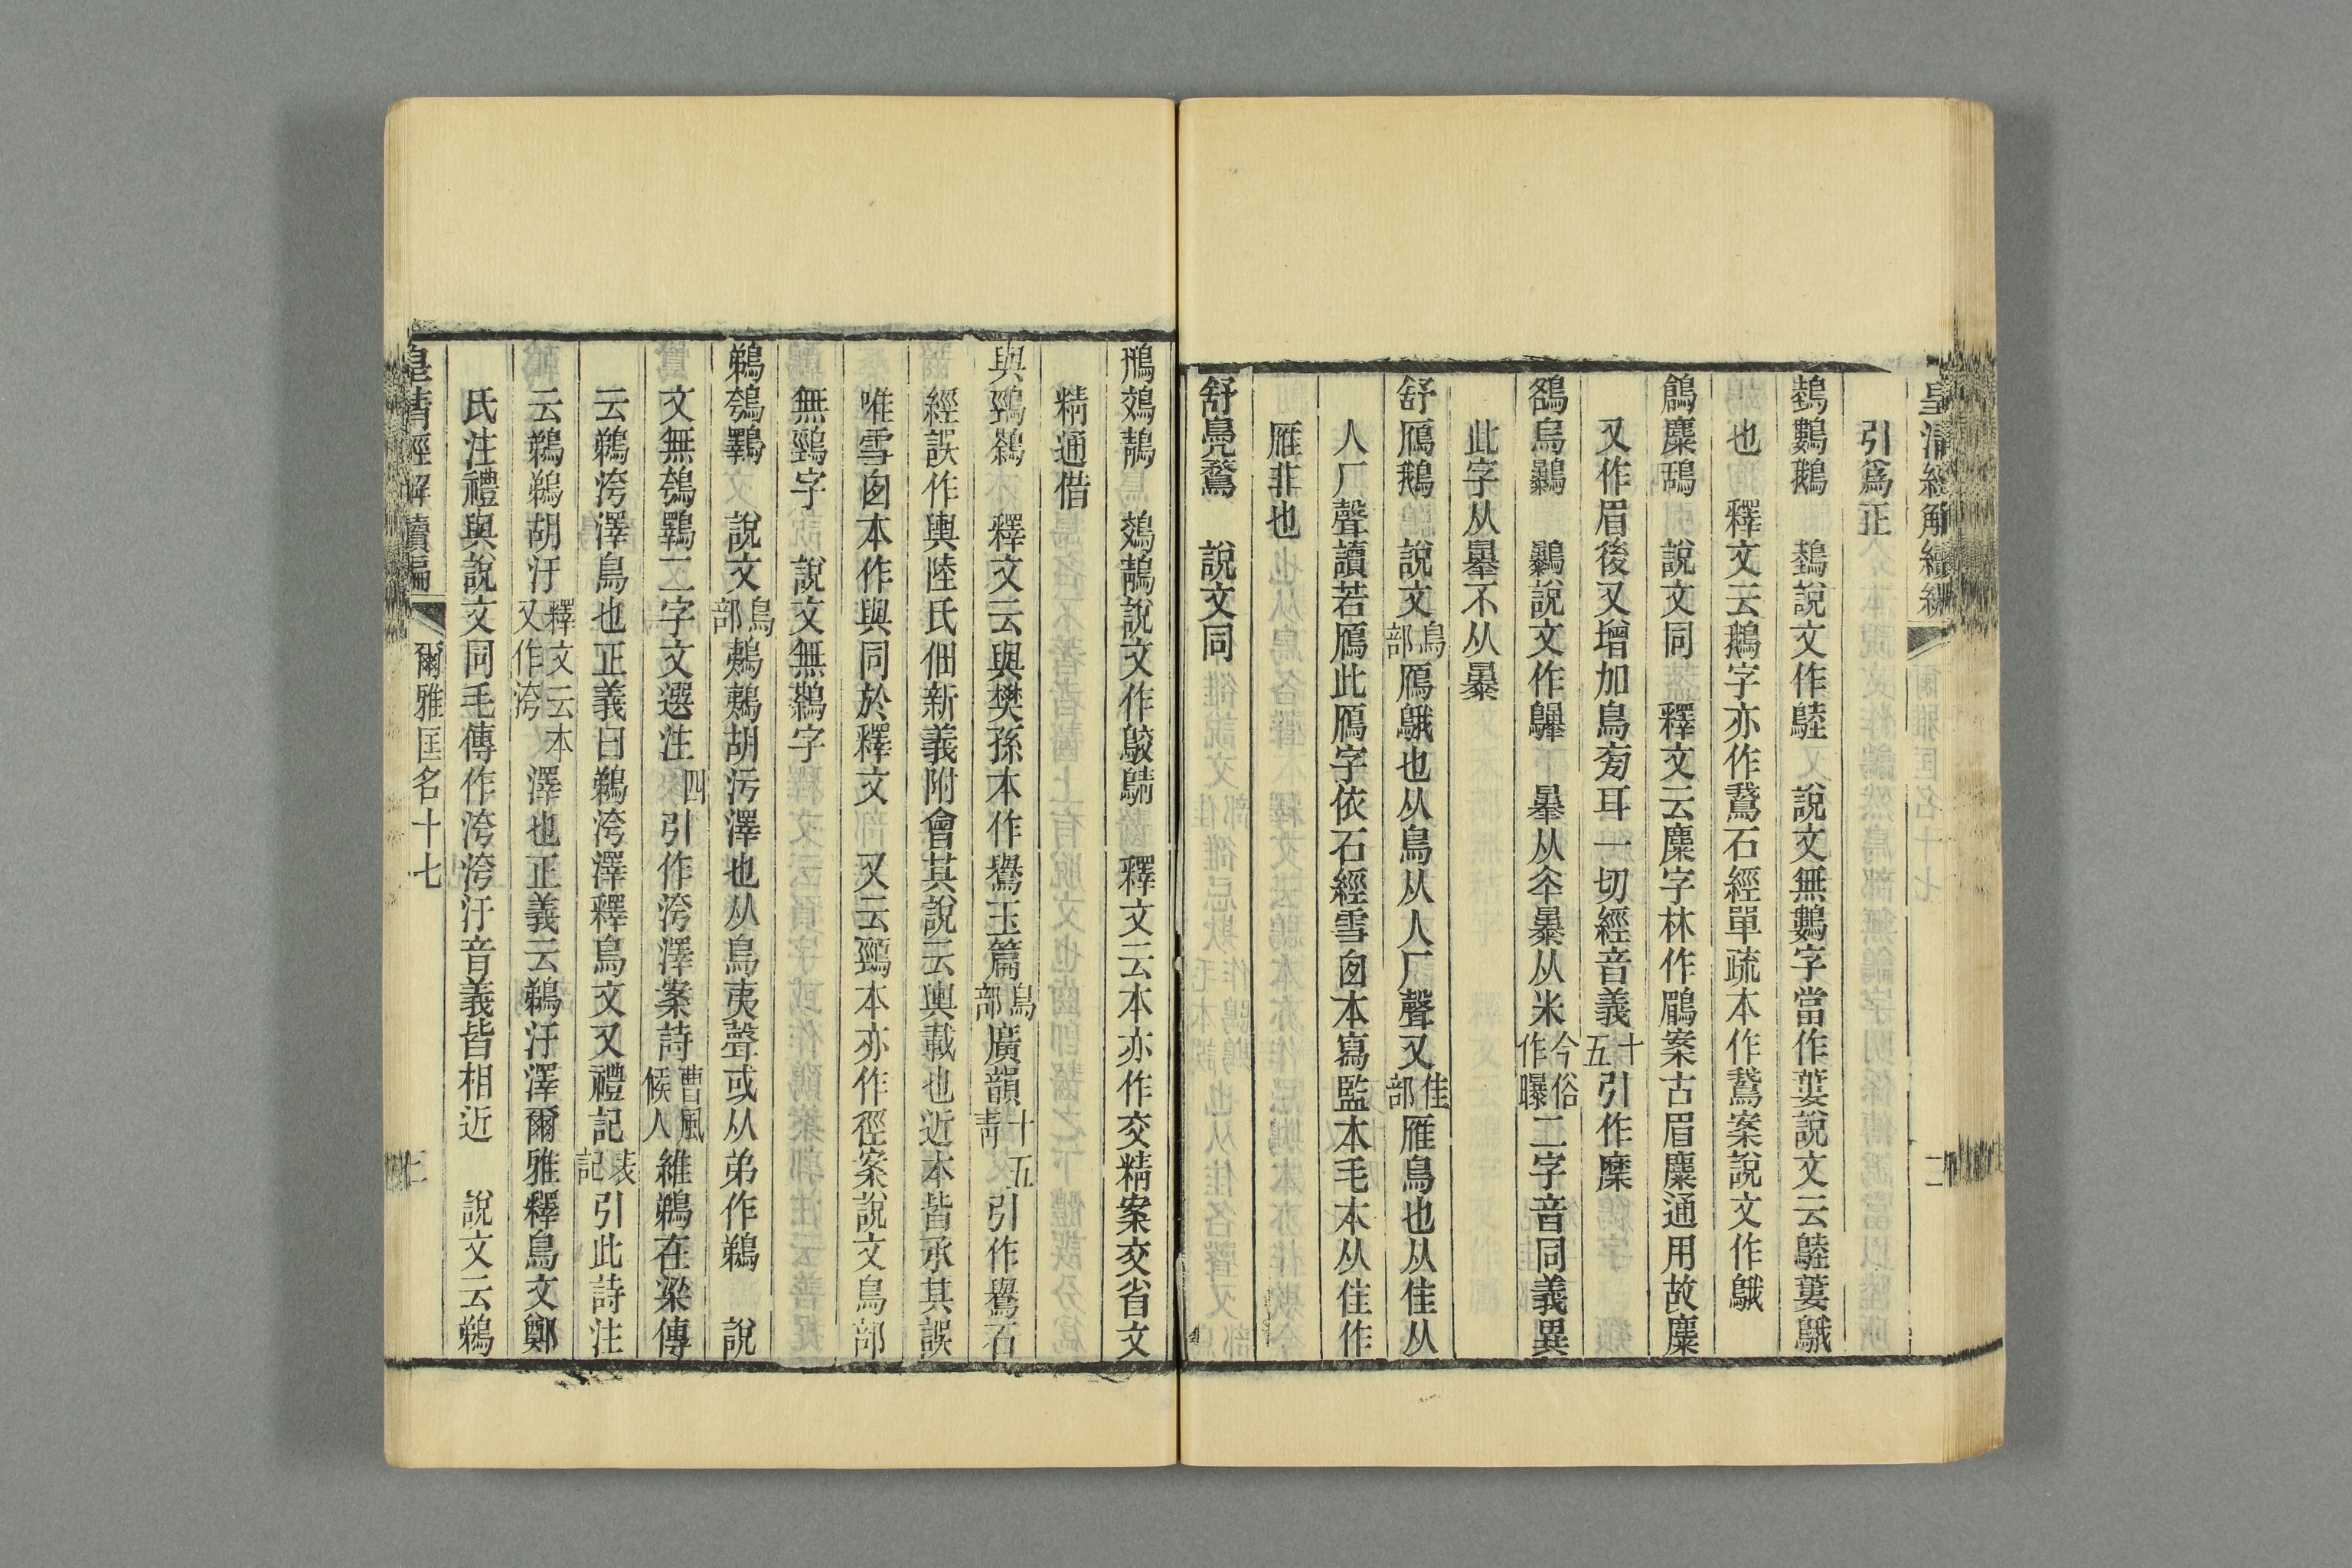 皇清經解續編 爾雅匡名十七 十一
引爲正
鵱鷜鵝 鵱說文作䳓 說文無鷜字當作蔞說文云䳓蔞䳘
也 釋文云鵝字亦作鵞石經單疏本作鵞案說文作䳘
鶬麋鴰 說文同 釋文云麋字林作鶥案古眉麋通用故麋
又作眉後又增加鳥㫄耳一切經音義十五引作麋
鵅烏鸔 鸔說文作䴏 㬥从夲暴从米今俗作曝二字音同義異
此字从㬥不从暴
舒鴈鵝 說文鳥部鴈䳘也从鳥从人厂聲又隹部雁鳥也从隹从
人厂聲讀若鴈此鴈字依石經雪囱本寫監本毛本从隹作
雁非也
舒鳧鶩 說文同
鳽鵁鶄 鵁鶄說文作䴔鶄 釋文云本亦作交精案交省文
精通借
與鵛鷋 釋文云與樊孫本作鸒玉篇鳥部廣韻十五青引作鸒石
經誤作輿陸氏佃新義附會其說云輿載也近本皆承其誤
唯雪囱本作與同於釋文 又云鵛本亦作徑案說文鳥部
無鵛字 說文無鷋字
鵜鴮鸅 說文鳥部鴺鴺胡污澤也从鳥夷聲或从弟作鵜 說
文無鴮鸅二字文選注四引作洿澤案詩曹風候人維鵜在梁傳
云鵜洿澤鳥也正義曰鵜洿澤釋鳥文又禮記表記引此詩注
云鵜鵜胡汙釋文云本又作洿澤也正義云鵜汙澤爾雅釋鳥文鄭
氏注禮與說文同毛傳作洿洿汙音義皆相近 說文云鵜
皇清經解續編 爾雅匡名十七